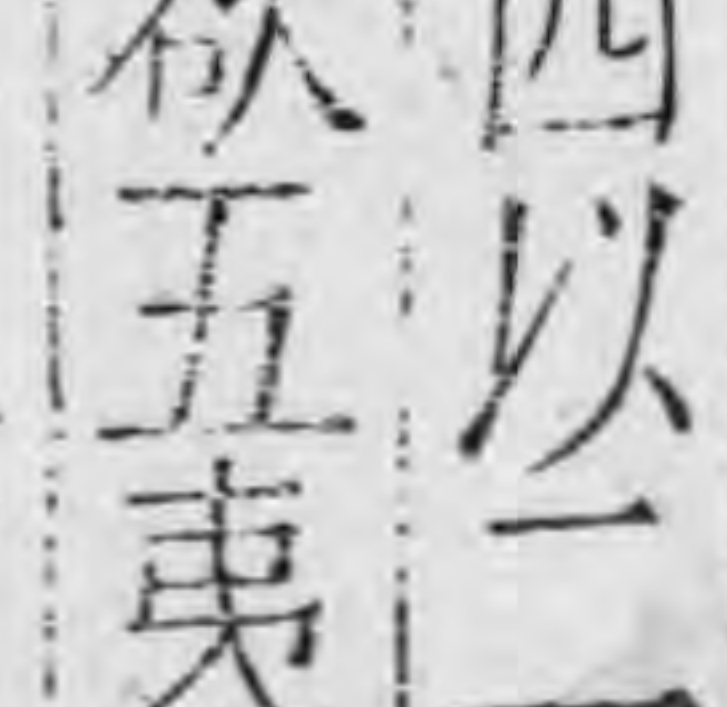 四以一
五夷